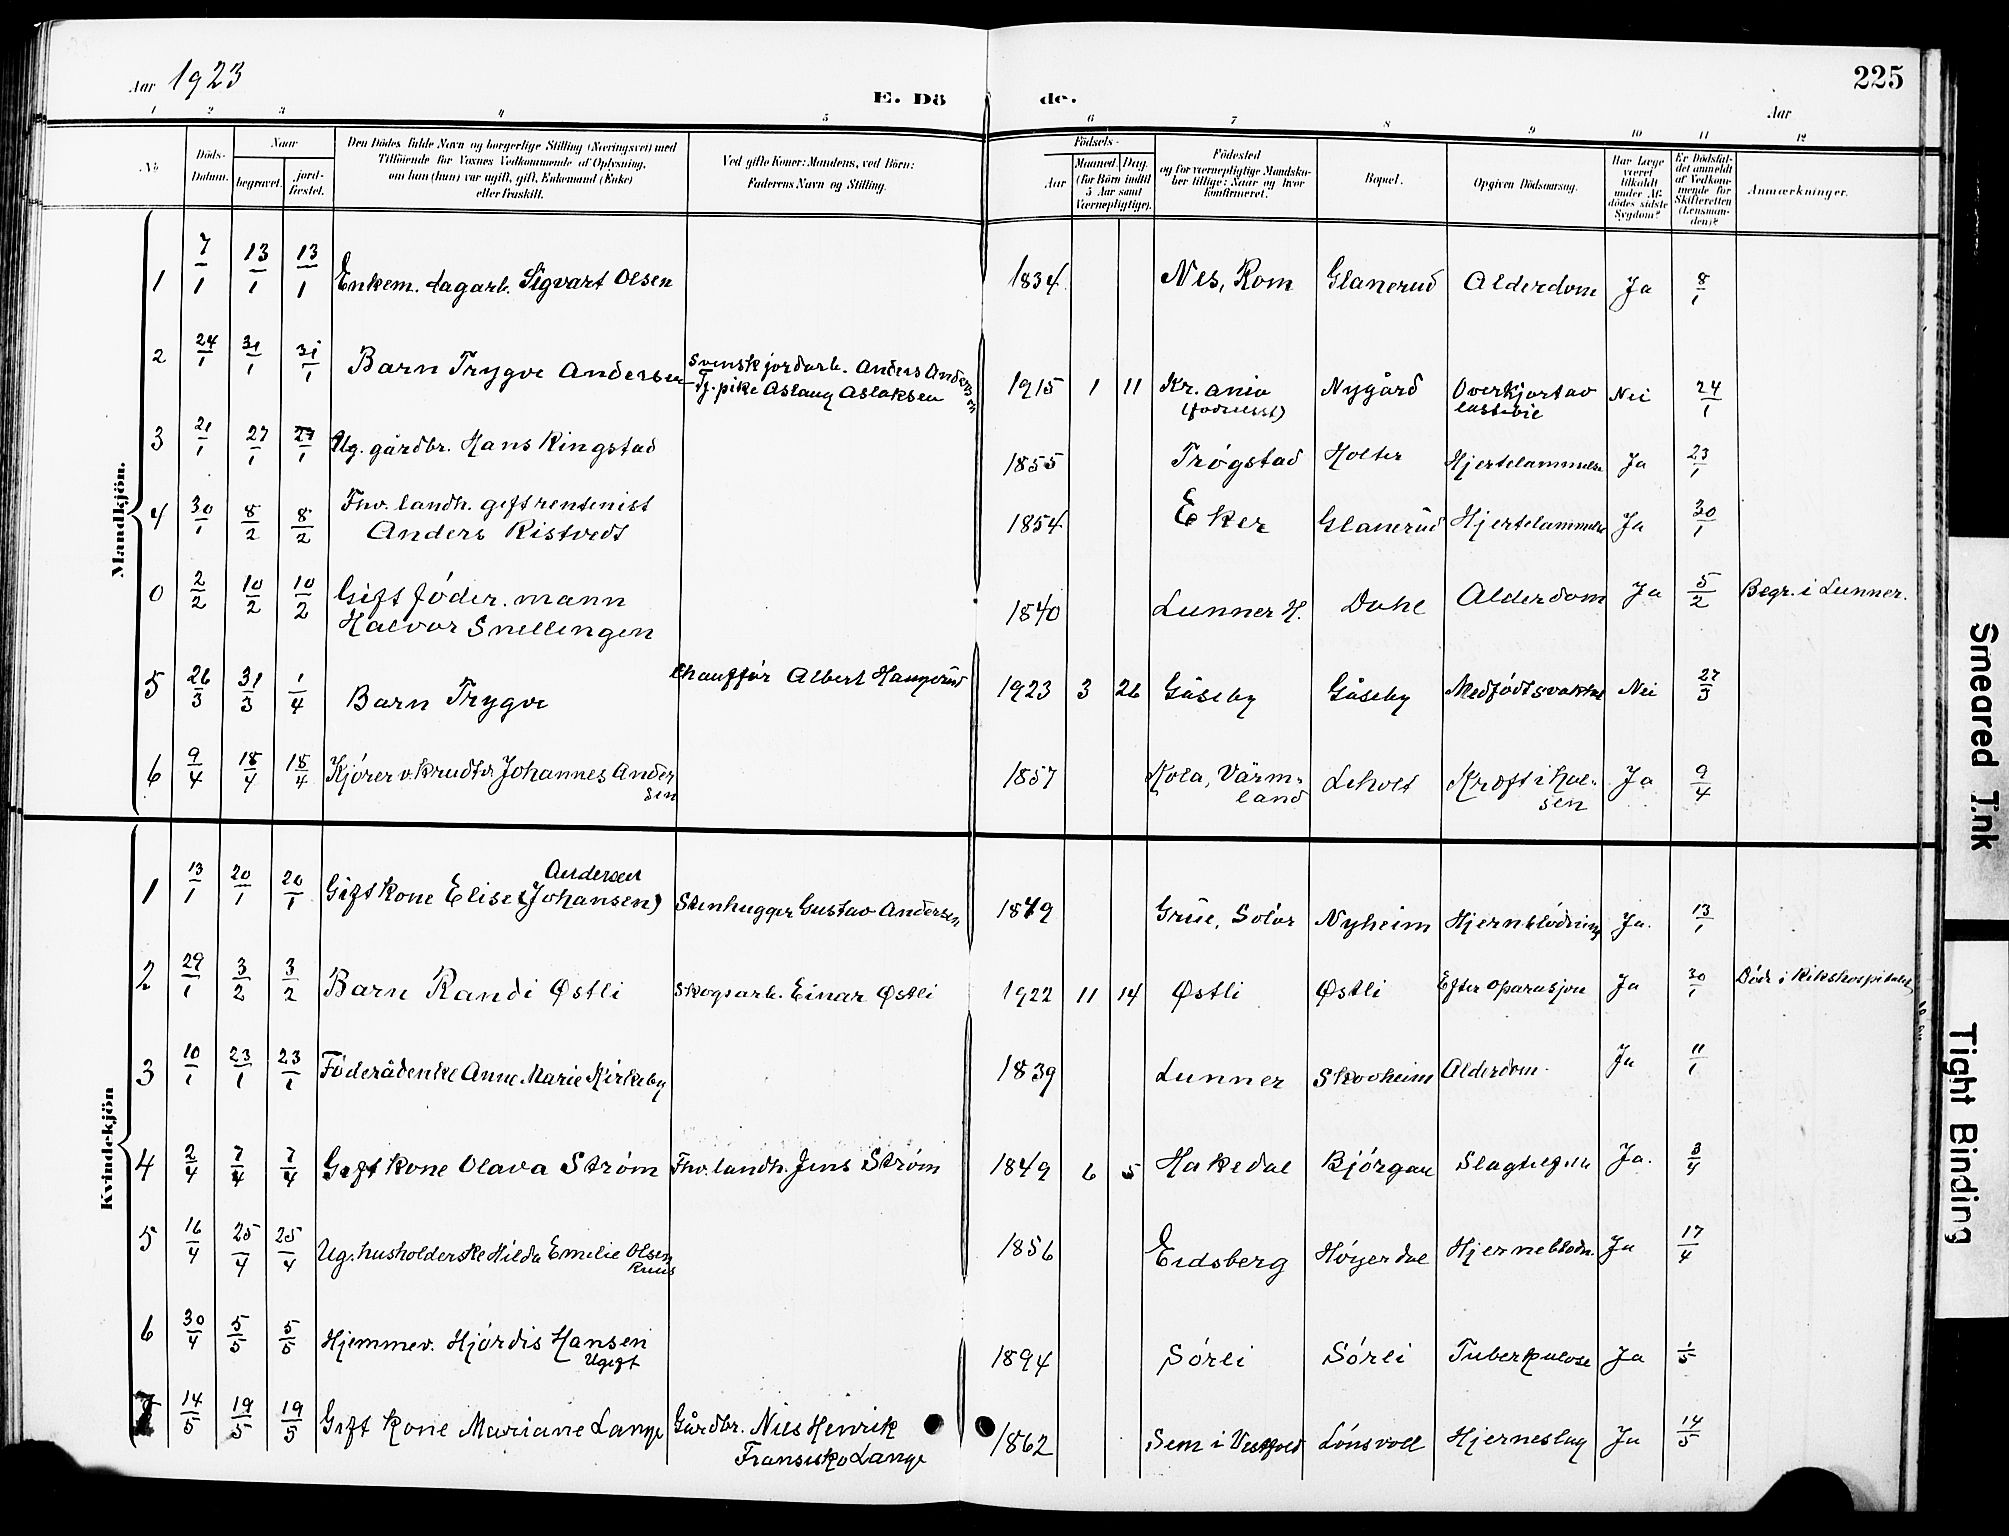 Aar 1923
E. Dö de.
Aar
225
1 2 3 4 5 6 7 8 9 10 11 12
No
Döds-Datum.
Naar
begravet.
jord-fæstet.
Den Dödes fulde Navn og borgerlige Stilling (Næringsvei) med
Tilföiende for Voxnes Vedkommende af Oplysning,
om han (hun) var ugift, gift, Enkemand (Enke)
eller fraskilt.
Ved gifte Koner: Mandens, ved Börn:
Faderens Navn og Stilling.
Födsels-
Aar
Maaned. Dag.
(for Börn indtil
5 Aar samt
Værnepligtige).
Födested
og for værnepligtige Mandsko-
ber tillige: Naar og hvor
konfirmeret.
Bopæl.
Opgiven Dödsaarsag.
Har Læge
været
tilkaldt
under Af-
dödes sidste
Sygdom?
Er Dödsfal-
det anmeldt
af Vedkom-
mende for
Skifteretten
(Lensman-
den)?
Anmærkninger.
Mandkjön.
1 7/1 13/1 13/1 Enkem. dagarb. Sigvart Olsen 1834 Nes, Rom Glanerud Alderdom Ja 8/1
2 24/1 31/1 31/1 Barn Trygve Andersen Svensk jordarb. Anders Andersson
Tj. pike Aslaug Aslaksen 1915 1 11 Kr.ania Nygård Overkjort av Nei 24/1
3 21/1 27/1 27/1 Ug. gårdbr. Hans Ringstad 1855 Trøgstad Holter Hjertelammelse Ja 23/1
4 30/1 8/2 8/2 Fhv. landh. gift rentenist
Anders Ristvedt 1854 Eker Glanerud Hjertelammelse Ja 30/1
0 2/2 10/2 10/2 Gift føder. mann
Halvor Snellingen 1840 Lunner H. Dahl Alderdom Ja 5/2 Begr. i Lunner.
5 26/3 31/3 1/4 Barn Trygve Chauffør Albert Haugerud 1923 3 26 Gåseby Gåseby Medfødt svakhet Nei 27/3
6 9/4 18/4 18/4 Kjører v. krudtv. Johannes Ander
sen 1857 Kola, Värm-
land Leholt Kræft i hal-
sen Ja 9/4
Kvindekjön
1 13/1 20/1 20/1 Gift kone Elise (Johansen) Andersen Stenhugger Gustav Andersen 1849 Grue, Solør Nyheim Hjernblødning Ja. 13/1
2 29/1 3/2 3/2 Barn Randi Østli Skogsarb. Einar Østli 1922 11 14 Østli Østli Efter oparasjon Ja 30/1 Død i Rikshospitalet
3 10/1 23/1 23/1 Føderådenke Anne Marie Kirkeby 1839 Lunner Skovheim Alderdom. Ja 11/1
4 2/4 7/4 7/4 Gift kone Olava Strøm Fhv. landh. Jens Strøm 1849 6 5 Hakedal Bjørgan Slagtilfelle Ja. 3/4
5 16/4 25/4 25/4 Ug. husholderske Hilda Emilie Olsen
Ruus 1856 Eidsberg Høyerdal Hjerneblødn. Ja 17/4
6 30/4 5/5 5/5 Hjemmev. Hjørdis Hansen
Ugift 1894 Sørli Sørli Tuberkulose Ja 1/5
7 14/5 19/5 19/5 Gift kone Mariane Lange Gårdbr. Nils Henrik
Fransisko Lange 1862 Sem i Vestfold Lønsvoll Hjerneslag Ja 14/5
Smeared Ink
Tight Binding